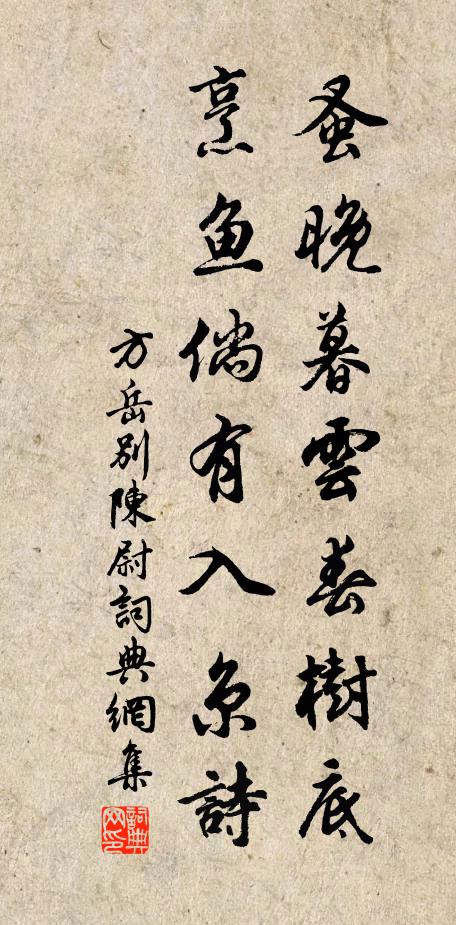 蚤晚暮雲春樹底
烹魚倘有入京詩
方岳別陳尉詞典網集
詞典網印